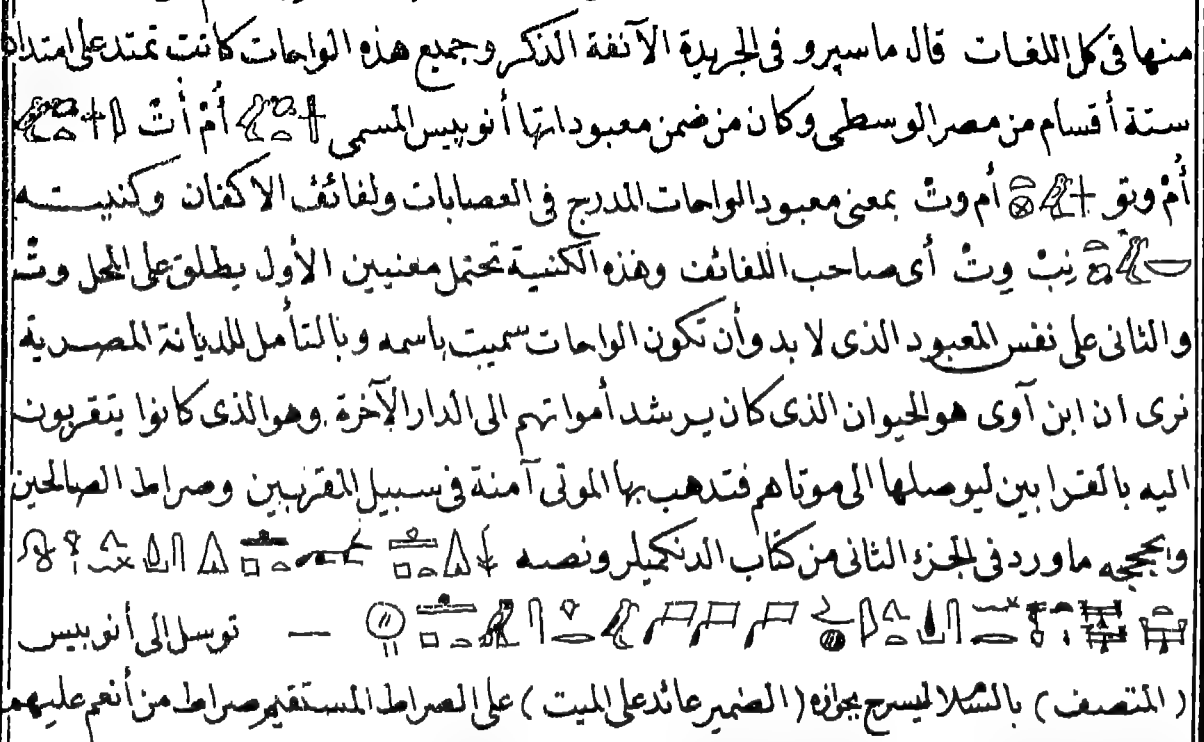 منها فى كل اللغات قال ماسپرو فى الجريدة الآنفة الذكر وجميع هذه الواحات كانت تمتد على امتداد
ستة أقسام من مصر الوسطى وكان من ضمن معبوداتها أنوبيس المسمى أُمْ أُتْ
أُمْ وتو أم وتْ بمعنى معبود الواحات المدرج فى العصابات ولفائف الاكفان وكنيته
نِبْ وِتْ أى صاحب اللفائف وهذه الكنية تحتمل معنيين الأول يطلق على المحل وتْ
والثانى على نفس المعبود الذى لا بد وأن تكون الواحات سميت باسمه وبالتأمل للديانة المصرية
نرى ان ابن آوى هو الحيوان الذى كان يرشد أمواتهم الى الدار الآخرة وهو الذى كانوا يتقربون
اليه بالقرابين ليوصلها الى موتاهم فتذهب بها الموتى آمنة فى سبيل المقربين وصراط الصالحين
ما ورد فى الجزء الثانى من كتاب الدنكميلر ونصه
— توسل الى أنوبيس
( المتصف ) ليسرح بجوازه ( الضمير عائد على الميت ) على الصراط المستقيم صراط من أنعم عليهم